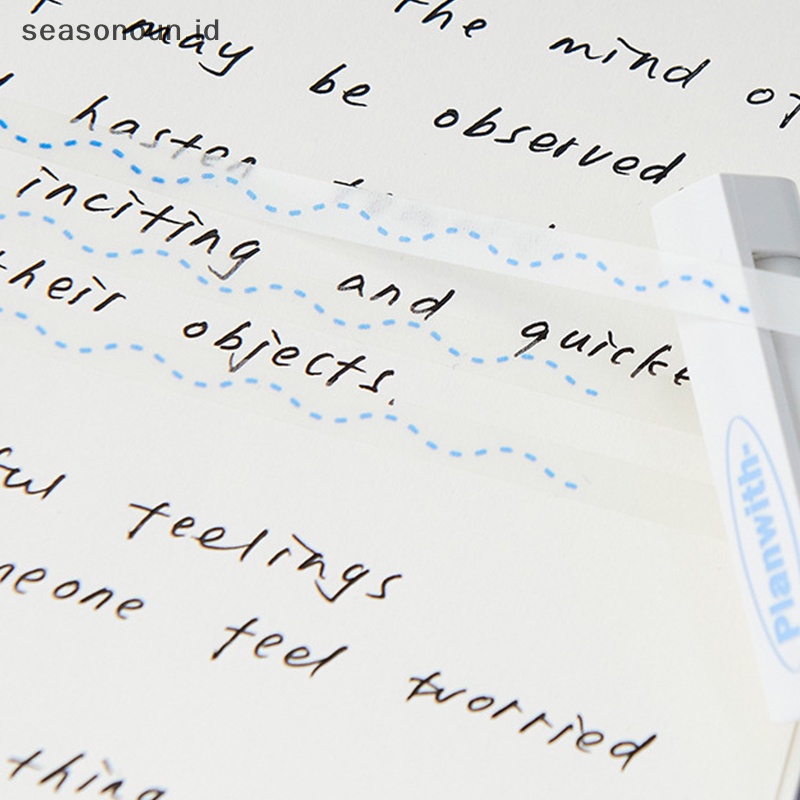 seasonoun.id
the mind of
may be observed,
hasten
inciting and quicke
their objects.
ful feelings
meone feel worried
thing
Planwith-